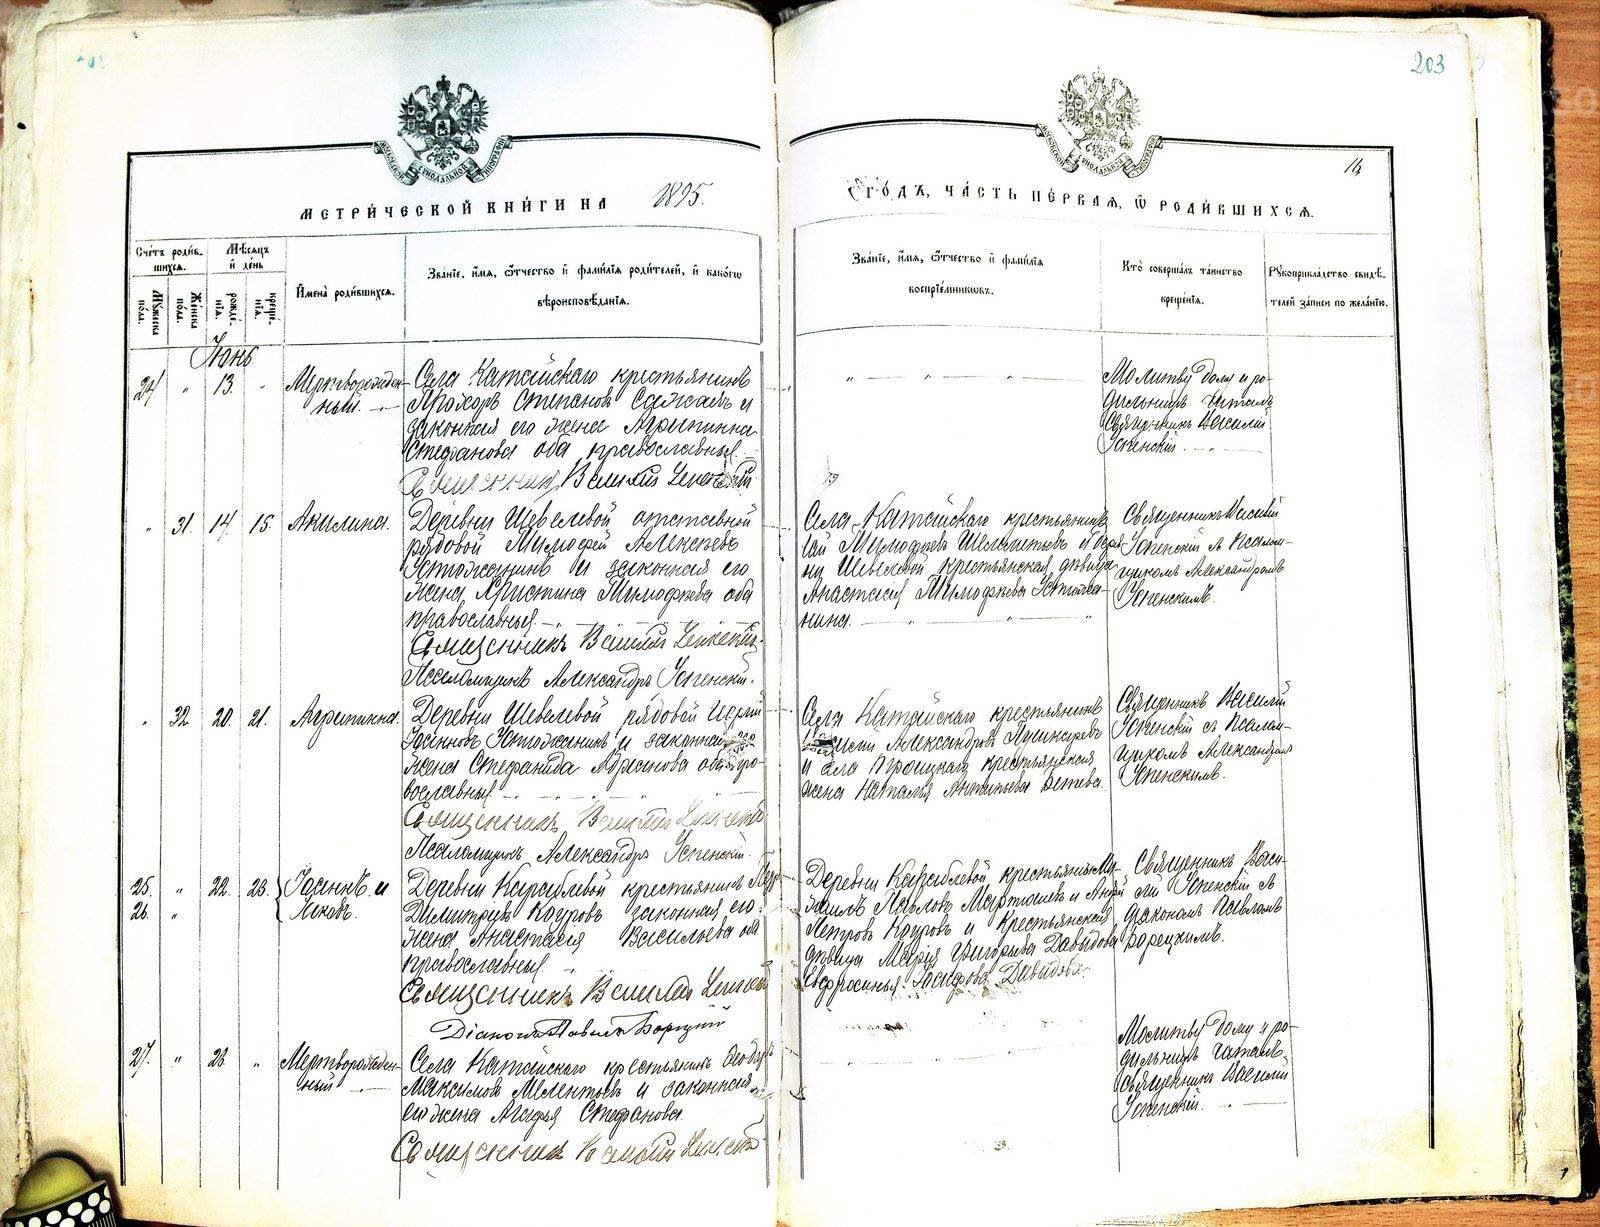 203
14
МОСКОВСКОЙ СѴНОДАЛЬНОЙ ТИПОГРАФІИ
МОСКОВСКОЙ СѴНОДАЛЬНОЙ ТИПОГРАФІИ
МЕТРИ́ЧЕСКОЙ КНИ́ГИ НА 1895.
ГО́ДЪ, ЧА́СТЬ ПЕ́РВАЯ, Ѽ РОДИ́ВШИХСЯ.
Сче́тъ роди́вшихся.
Му́жеска по́ла.
Же́нска по́ла.
Мѣ́сяцъ и҆ де́нь
рожде́нїѧ.
креще́нїѧ.
И҆мена̀ роди́вшихся.
Зва́нїе, и҆́мя, ѻ҆́тчество и҆ фами́лїя роди́телей, и҆ како́гѡ
вѣроисповѣ́данїя.
Зва́нїе, и҆́мя, ѻ҆́тчество и҆ фами́лїя
воспрїе́мникѡвъ.
Кто̀ соверша́лъ та́инство
креще́нїя.
Рꙋкоприкла́дство свидѣ́-
телей за́писи по жела́нїю.
Іюнь
24 " 13. "
Мертворожден-
ный.
Села Катайскаго крестьянинъ
Прохоръ Степановъ и
законная его жена Агрипина
Стефановва оба православные.
Священникъ Василій Успенскій
Молитву дому и ро-
дильницѣ читалъ
Священникъ Василій
Успенскій.
" 31. 14. 15. Акилина.
Деревни Шевелевой отставной
рядовой Тимофей Алексѣевъ
Устюжанинъ и законная его
жена Христина Тимофеева оба
православные.
Священникъ Василій Успенскій
Псаломщикъ Александръ Успенскій.
Села Катайскаго крестьянинъ
Тимофеевъ и дерев-
ни Шевелевой крестьянская дѣвица
Анастасія Тимофеева Устюжа-
нина.
Священникъ Василій
Успенскій съ Псалом-
щикомъ Александромъ
Успенскимъ.
" 32. 20. 21. Агрипина.
Деревни Шевелевой рядовой
Іоанновъ Устюжанинъ и законная его
жена Стефанида оба пра-
вославные.
Священникъ Василій Успенскій
Псаломщикъ Александръ Успенскій.
Села Катайскаго крестьянинъ
Александровъ Пушкаревъ
и села Троицкаго крестьянская
жена Наталія
Священникъ Василій
Успенскій съ Псалом-
щикомъ Александромъ
Успенскимъ.
25. " 22. 23. Іоаннъ и
26. " Іаковъ.
Деревни Кораблевой крестьянинъ
Димитріевъ законная его
жена Анастасія Васильева оба
православные.
Священникъ Василій Успенскій
Діаконъ Павелъ Борецкій
Деревни Кораблевой крестьянинъ
Павловъ и
Петровъ и крестьянская
дѣвица Марія Григорьева Давыдова
Евфросинья Іосифова Давыдова.
Священникъ Васи-
лій Успенскій съ
діакономъ Павломъ
Борецкимъ.
27. " 28. "
Мертворожден-
ный
Села Катайскаго крестьянинъ
Максимовъ Мелентьевъ и законная
его жена Агафья Стефанова.
Священникъ Василій Успенскій
Молитву дому и ро-
дильницѣ читалъ
священникъ Василій
Успенскій.